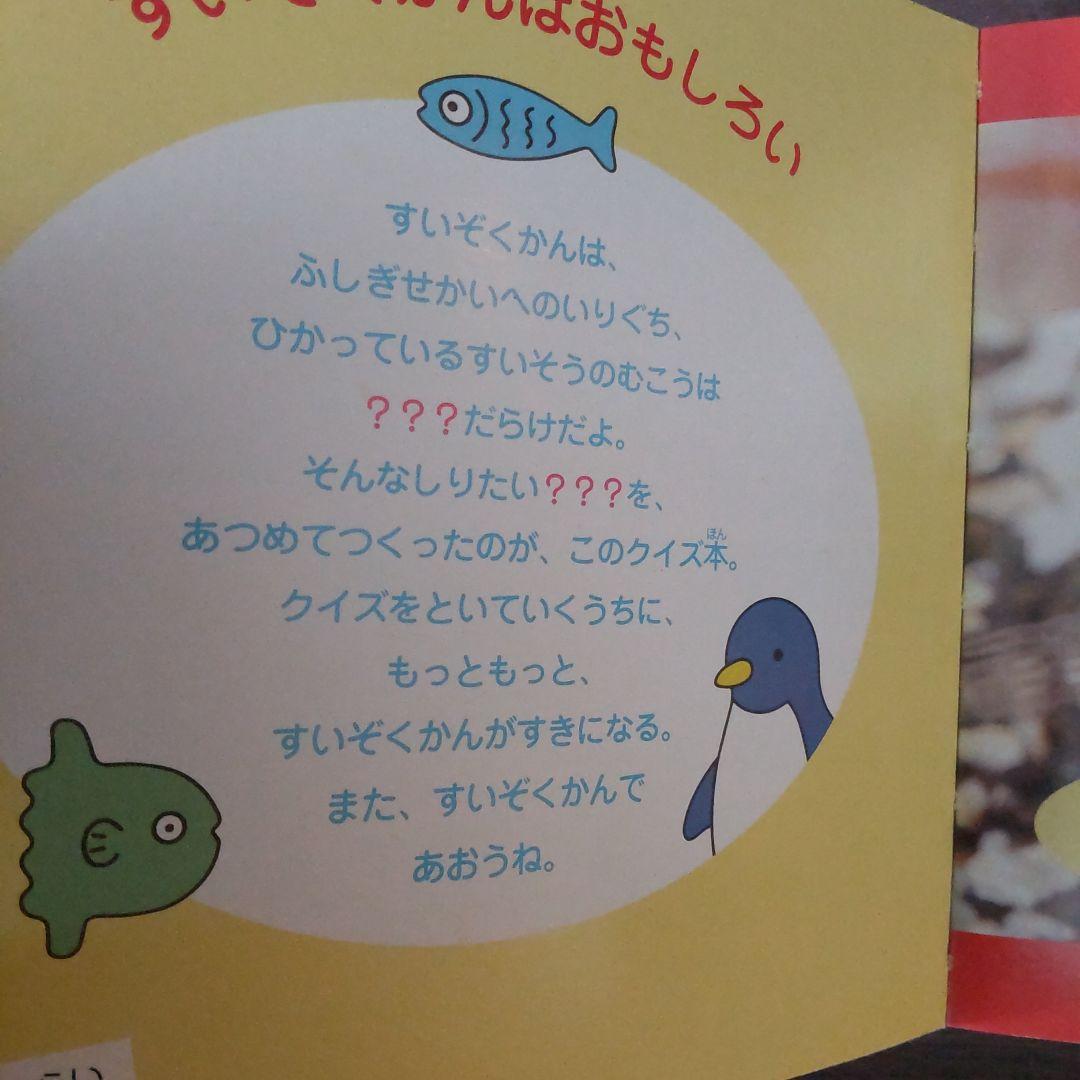 すいぞくかんはおもしろい
すいぞくかんは、
ふしぎせかいへのいりぐち、
ひかっているすいそうのむこうは
？？？だらけだよ。
そんなしりたい？？？を、
あつめてつくったのが、このクイズ本。
ほん
クイズをといていくうちに、
もっともっと、
すいぞくかんがすきになる。
また、すいぞくかんで
あおうね。